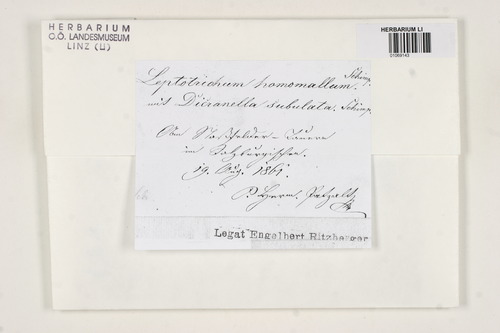 HERBARIUM
O.Ö. LANDESMUSEUM
LINZ (LI)
HERBARIUM LI
01069143
Leptotrichum homomallum. Schimp.
mit Dicranella subulata. Schimp.
Am Naßfelder-Tauern
im Salzburgischen.
19. Aug. 1861.
P. Herm. Patzalt
Legat Engelbert Ritzberger